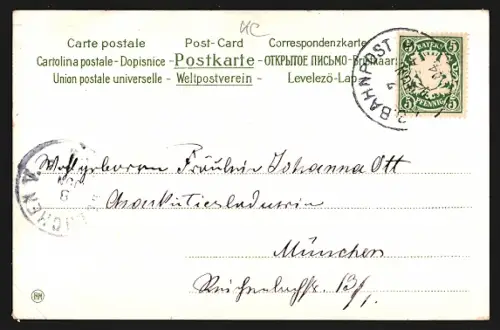 Carte postale Post-Card Correspondenzkarte
Cartolina postale - Dopisnice - Postkarte - ОТКРЫТОЕ ПИСЬМО - Briefkaart
Union postale universelle - Weltpostverein - Levelező-Lap
BAYERN
5 5
5 5
PFENNIG
BAHNPOST
MÜNCHEN
8
Wohlgeboren Fräulein Johanna Ott
München
Reichenbachstr. 13/1.